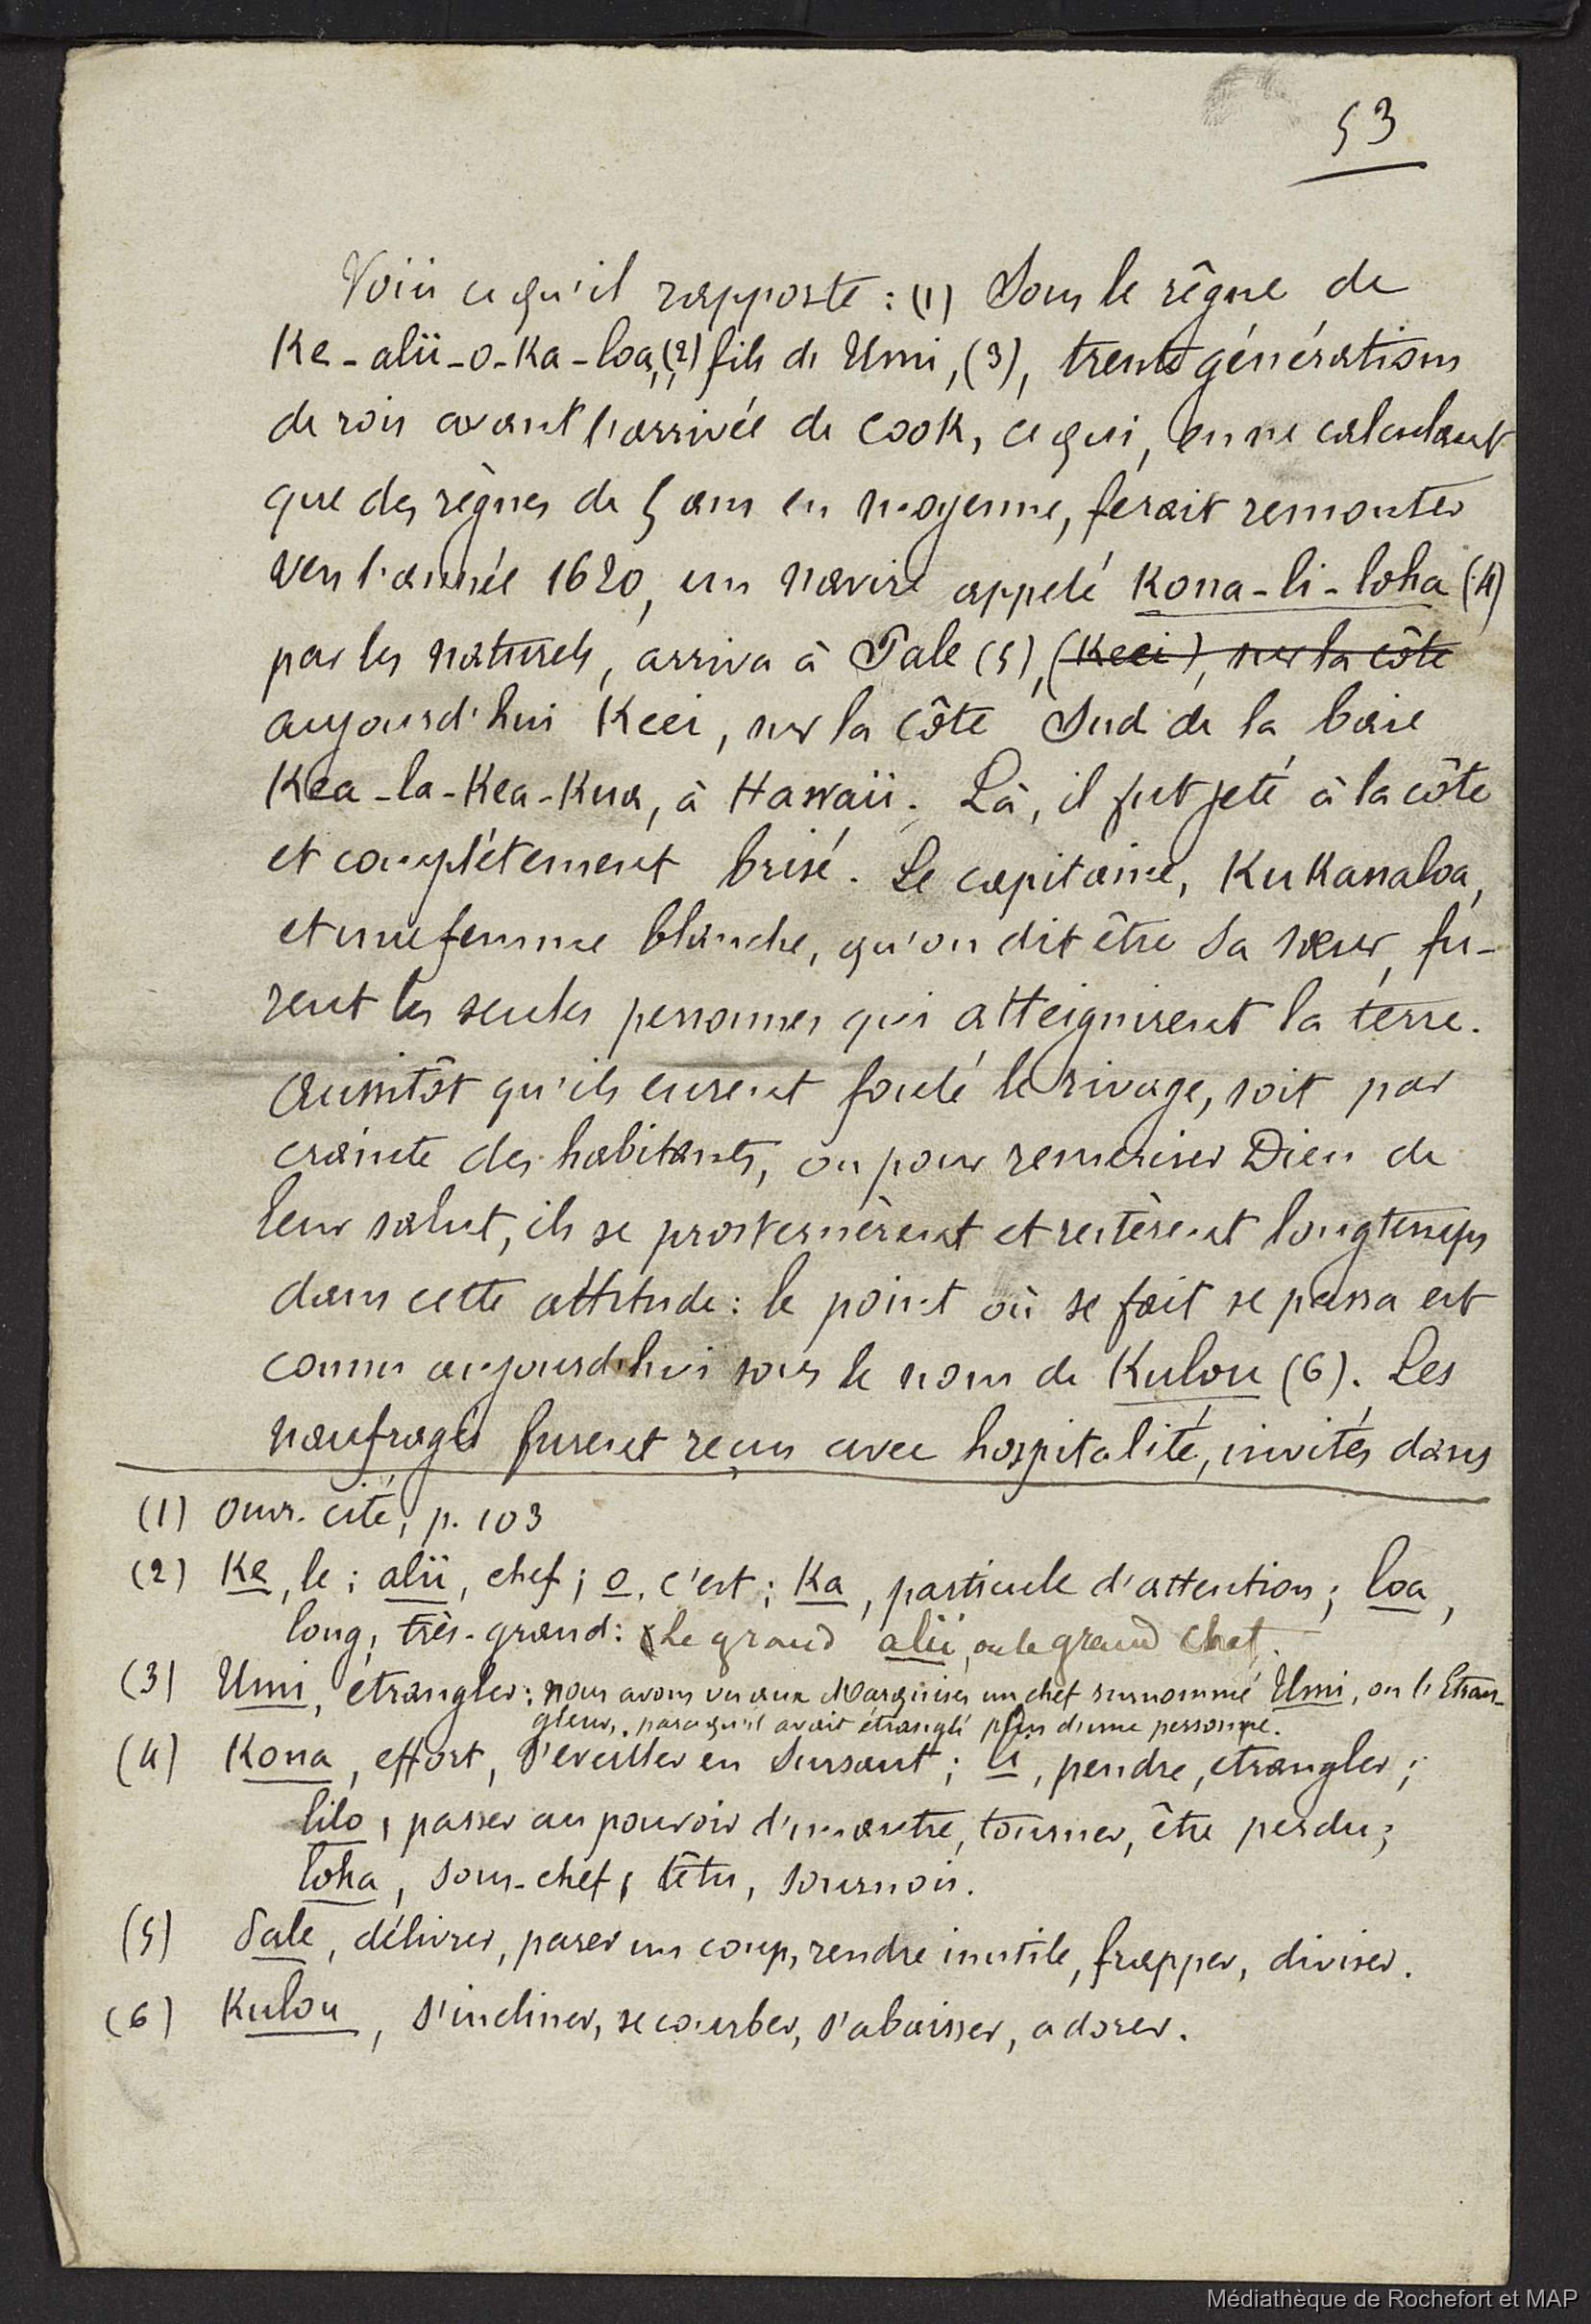 53
Voici ce qu'il rapporte : (1) Sous le règne de
Ke-alii-o-Ka-loa, (2) fils de Umi, (3), trente générations
de rois avant l'arrivée de Cook, ce qui, en ne calculant
que des règnes de 5 ans en moyenne, ferait remonter
vers l'année 1620, un navire appelé Kona-li-loha (4)
par les naturels, arriva à Pale (5), (Keei), sur la côte
aujourd'hui Keei, sur la côte Sud de la baie
Kea-la-Kea-Kua, à Hawaii. Là, il fut jeté à la côte
et complétement brisé. Le capitaine, Kukanaloa,
et une femme blanche, qu'on dit être sa sœur, fu-
rent les seules personnes qui atteignirent la terre.
Aussitôt qu'ils eurent foulé le rivage, soit par
crainte des habitants, ou pour remercier Dieu de
leur salut, ils se prosternèrent et restèrent longtemps
dans cette attitude : le point où se fait se passa est
connu aujourd'hui sous le nom de Kulou (6). Les
naufragés furent reçus avec hospitalité, invités dans
(1) Ouvr. cité, p. 103
(2) Ke, le ; alii, chef ; o, c'est ; Ka, particule d'attention ; loa,
long, très-grand : Le grand alii, ou le grand chef.
(3) Umi, étrangler : nous avons vu aux Marquises un chef surnommé Umi, ou l'Etran-
gleur, parcequ'il avait étranglé plus d'une personne.
(4) Kona, effort, s'éveiller en sursaut ; li, pendre, étrangler ;
lilo, passer au pouvoir d'un autre, tourner, être perdu ;
loha, sous-chef, têtu, sournois.
(5) Pale, délivrer, parer un coup, rendre inutile, frapper, diviser.
(6) Kulou, s'incliner, se courber, s'abaisser, adorer.
Médiathèque de Rochefort et MAP